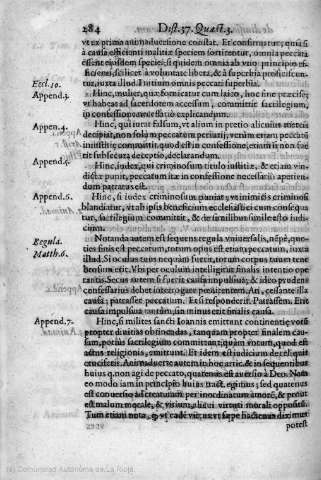 284 Dist. 37. Quæst. 3.
vt ex primo animaduersione constat. Et confirmatur, quia si
à causa efficienti malitiæ speciem sortiretur, omnia peccata
essent eiusdem speciei; siquidem omnia ab vno principio ef-
ficienti, scilicet à voluntate libera, & à superbia
tur, iuxta illud Initium omnis peccati superbia.
Eccl. 10.
Append. 3.
Hinc, mulier, quæ fornicatur cum laico,
vt habeat ad sacerdotem accessum, committit sacrilegium,
in confessione explicandum.
Appen. 4.
Hinc, qui iurat falsum, vt alium in pretio alicuius mercis
decipiat, non solùm peccatum periurij, verùm etiam peccatū
iniustitiæ committit: quod est in confessione, etiamsi non eue-
rit subsecuta deceptio, declarandum.
Append. 5.
Hinc, iudex, qui criminosum titulo iustitiæ, & etiam vin-
dictæ punit, peccatum iræ in confessione necessariò aperien-
dum patratus est.
Append. 6.
Hinc, si iudex criminosum puniat; vt inimicis criminosi
blandiatur, vt ab ipsis beneficium ecclesiasticum consequa-
tur, sacrilegium committit, & de similibus simile esto iudi-
cium.
Regula.
Matth. 6.
Notanda autem est sequens regula vniuersalis, nēpè, quo-
ties finis est peccatum, totum opus est etiam peccatum, iuxta
illud. Si oculus tuus nequam fuerit, totum corpus tuum tene
brosum erit. Vbi per oculum intelligitur finalis intentio ope
rantis. Secus autem si fuerit causa impulsiua; & ideo prudens
confessarius debet interrogare poenitentem. An, cessante illa
causa; patasset peccatum. Et si responderit. Patassem. Erit
causa impulsiua tantùm, sin minus erit finalis causa.
Append. 7.
Hinc, si milites sancti Ioannis emittant continentiæ votū
propter diuitias obtinendas, tanquam propter finalem cau-
sam, potius sacrilegium committunt, quàm votum, quod est
actus religionis, emittunt. Et idem est iudicium de reliquis
crucifetis. Animaduerte autem in hoc artic. & in sequentibus
huius q. non agi de peccato, quatenus est auersio à Deo. Nam
eo modo iam in principio huius tract. egimus; sed quatenus
est conuersio ad creaturam per inordinatum amorē, & prout
est malum morale, & vitium, alicui virtuti morali oppositū.
Tum etiam nota, quod cadē virtus, vt sæpe hactenus diximus
potest
(c) Comunidad Autónoma de La Rioja